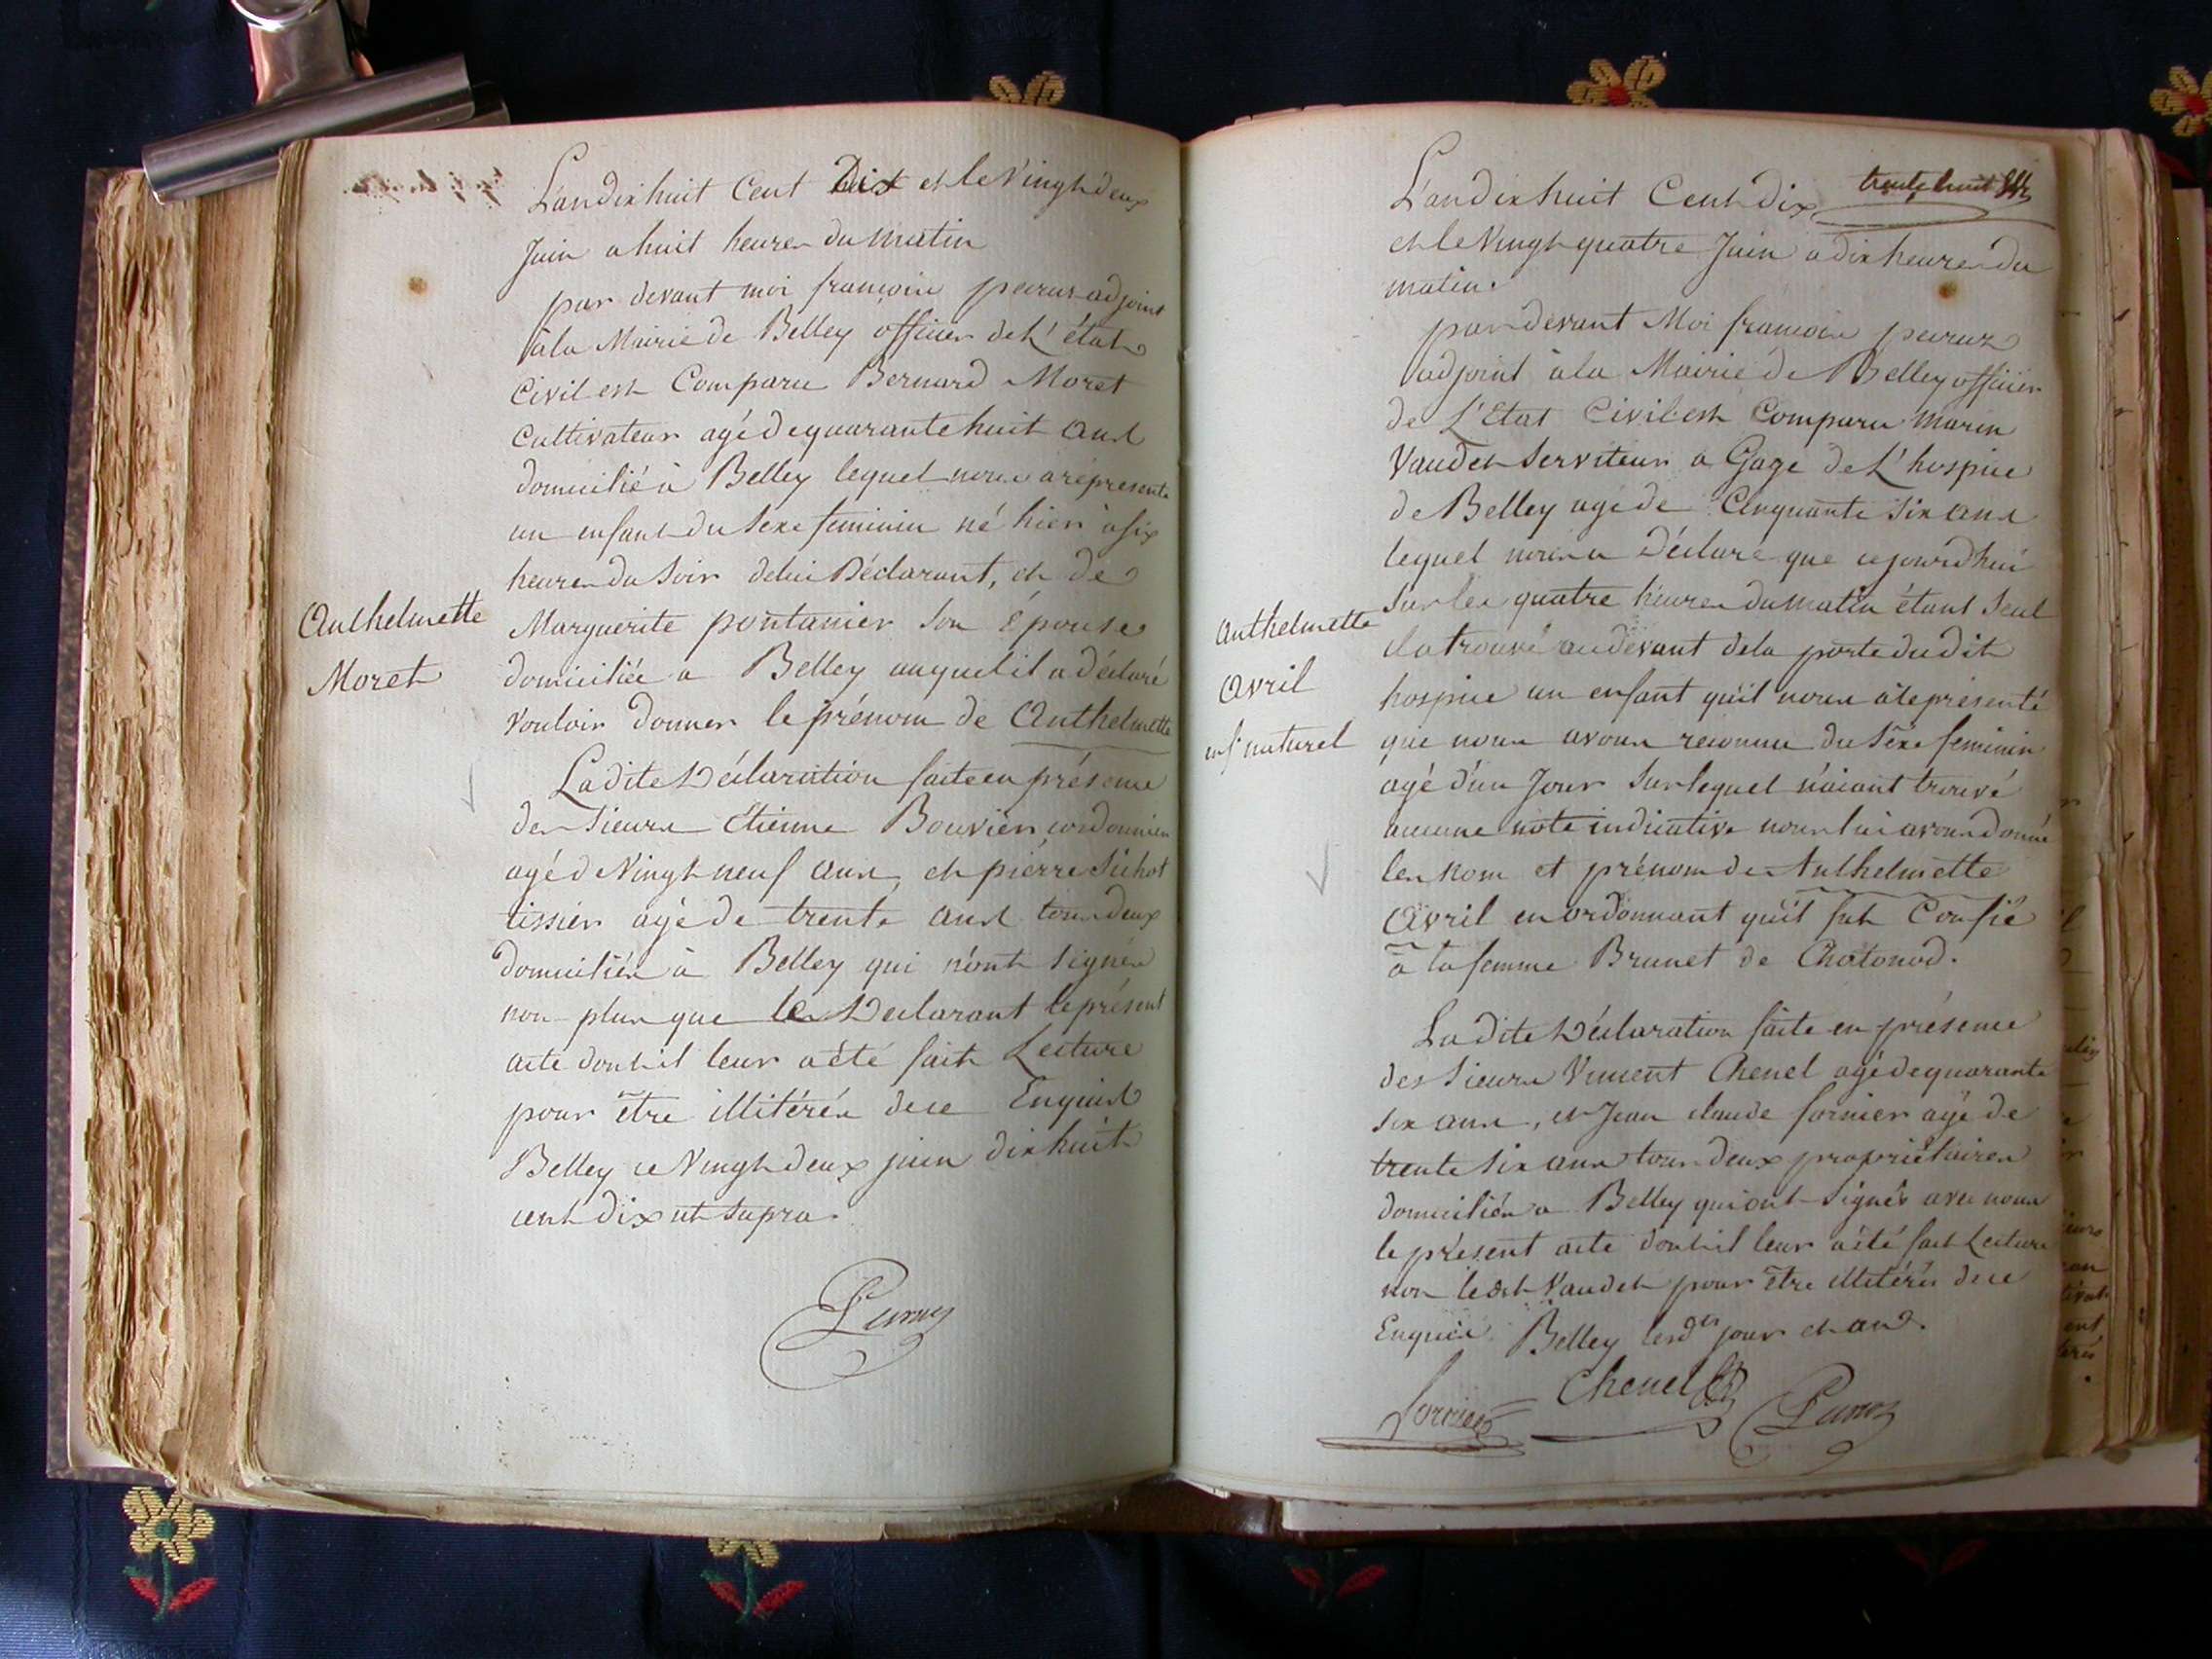 L'an dix huit Cent Dix et le Vingt deux
Juin a huit heures du Matin
par devant moi françois peuruz adjoint
à la Mairie de Belley officier de L'état
Civil est Comparu Bernard Moret
Cultivateur agé de quarante huit ans
domicilié à Belley lequel nous a représenté
un enfant du Sexe feminin né hier à six
heures du Soir de lui Déclarant, et de
Anthelmette
Marguerite pontanier son Épouse
Moret
domiciliée a Belley auquel il a déclaré
vouloir donner le prénom de Anthelmette
La dite Déclaration faite en présence
des Sieurs Etienne Bouvier cordonnier
agé de Vingt neuf ans, et pierre Sichot
tissier agé de trente ans tous deux
domiciliés à Belley qui n'ont signés
non plus que le Déclarant le présent
acte dont il leur a été fait Lecture
pour être illitérés de ce Enquis
Belley ce Vingt deux juin dix huit
cent dix ut supra.
trente huit
L'an dix huit Cent dix
et le Vingt quatre Juin a dix heures du
matin.
par devant Moi françois peuruz
adjoint à la Mairie de Belley officier
de L'Etat Civil est Comparu Marin
Vaudet Serviteur a Gage de L'hospice
de Belley agé de Cinquante six ans
lequel nous a Déclaré que cejourd'hui
sur les quatre heures du matin étant seul
Anthelmette
il a trouvé au devant de la porte du dit
Avril
hospice un enfant qu'il nous a représenté
enf naturel
que nous avons reconnu du Sexe feminin
agé d'un Jour Sur lequel n'aiant trouvé
aucune note indicative nous lui avons donné
les nom et prénom de Anthelmette
Avril en ordonnant qu'il fut Confié
à la femme Brunet de Chatonod.
La dite Déclaration faite en présence
des Sieurs Vincent Chenel agé de quarante
six ans, et Jean claude fornier agé de
trente six ans tous deux propriétaires
domiciliés a Belley qui ont signés avec nous
le présent acte dont il leur a été fait Lecture
non ledit Vaudet pour être illitéré de ce
Enquis. Belley lesdts jour et an.
Chenel